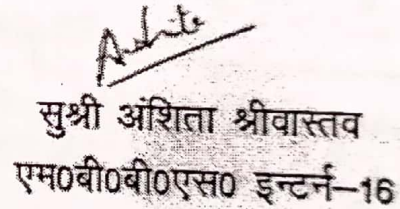 Anshita
सुश्री अंशिता श्रीवास्तव
एम0बी0बी0एस0 इन्टर्न–16